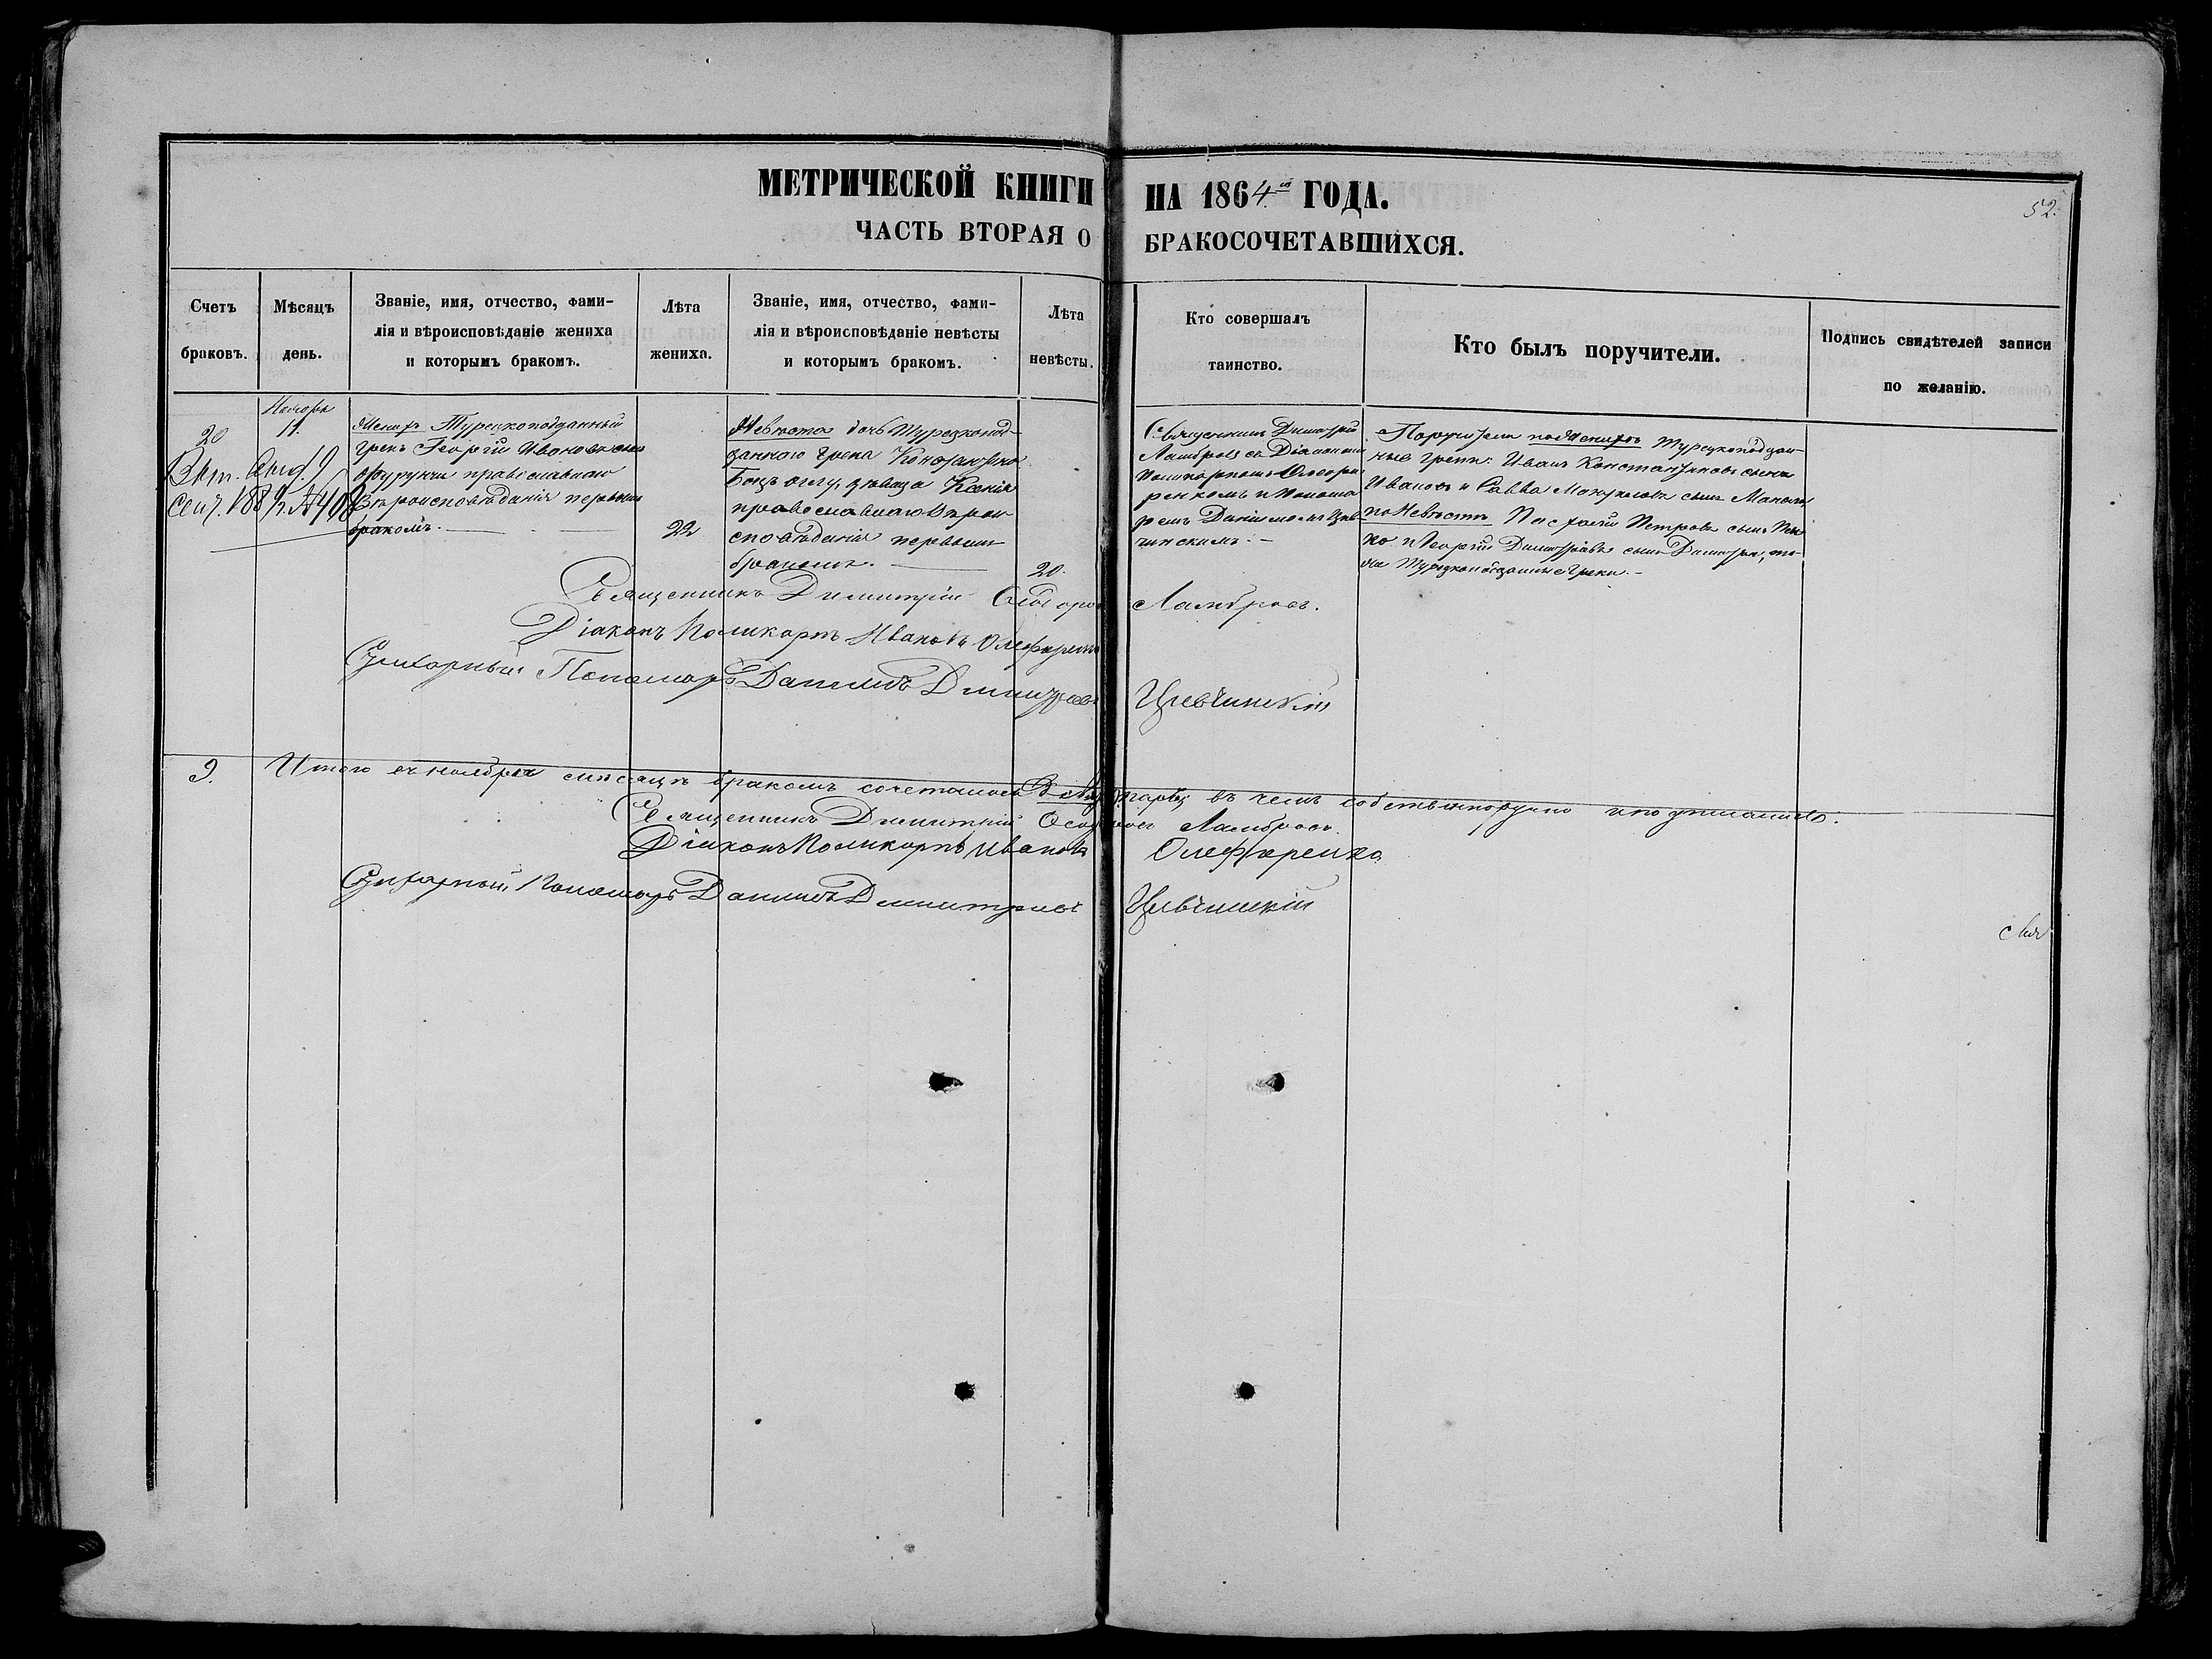 МЕТРИЧЕСКОЙ КНИГИ НА 1864 ГОДА.
52.
ЧАСТЬ ВТОРАЯ О БРАКОСОЧЕТАВШИХСЯ.
Счетъ браковъ.
Мѣсяцъ день.
Званіе, имя, отчество, фами-
лія и вѣроисповѣданіе жениха
и которымъ бракомъ.
Лѣта жениха.
Званіе, имя, отчество, фами-
лія и вѣроисповѣданіе невѣсты
и которымъ бракомъ.
Лѣта невѣсты.
Кто совершалъ
таинство.
Кто былъ поручители.
Подпись свидѣтелей записи
по желанію.
20
Ноябрь
11.
Женихъ Турецкоподданный
грекъ Георгій Ивановъ сынъ
православнаго
Вѣроисповѣданія первымъ
бракомъ.
22
Невѣста дочь Турецкопод-
даннаго грека Константина
дѣвица Ксенія
православнаго вѣрои
сповѣданія первымъ
бракомъ.
20.
Священникъ Димитрій
Ламбровъ съ Діакономъ
Поликарпомъ Олефи
ренкомъ и Понома
ремъ Даніиломъ Цев
чинскимъ.
Поручители по Женихѣ Турецкоподдан-
ные греки: Иванъ Константиновъ сынъ
Ивановъ и Савва сынъ
по Невѣстѣ Петровъ сынъ
ко и Георгій Димитріевъ сынъ Димитри, то-
же Турецкоподданные Греки.
Священникъ Димитрій Ламбровъ.
Діаконъ Поликарпъ Ивановъ Олефиренко
Пономарь Даніилъ Димитріевъ Цевчинскій
9. Итого въ ноябрѣ мѣсяцѣ бракомъ сочеталось въ чемъ собственноручно и подписались:
Священникъ Димитрій Ламбровъ.
Діаконъ Поликарпъ Ивановъ Олефиренко
Пономарь Даніилъ Димитріевъ Цевчинскій